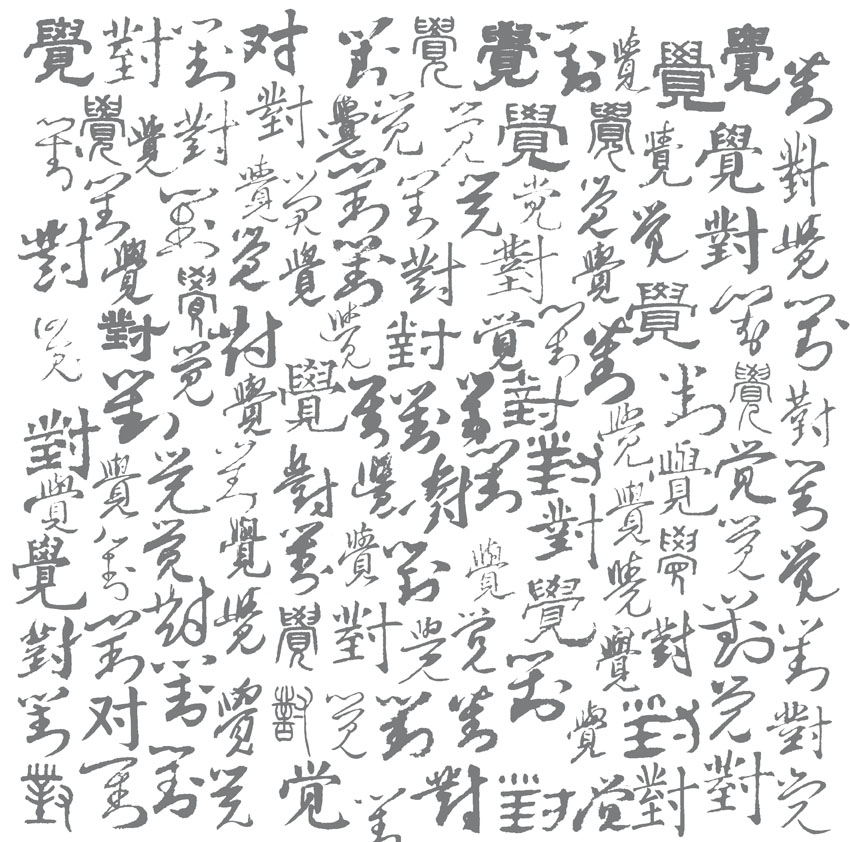 覺對對对對覺覺對覺覺覺對
對覺覺對對覺覺覺覺覺覺覺對
對對覺覺對對覺覺覺覺對覺
對覺覺覺對對對覺
覺對覺對覺對覺對對覺對對
對覺覺覺對對對對對覺對
對覺覺覺對對覺對對對覺覺覺對
覺對覺覺對覺對覺對覺覺覺覺
對對對覺覺對覺覺覺覺對對對
對对對覺對覺對對對覺對覺對
對對對覺覺對對對覺對對覺